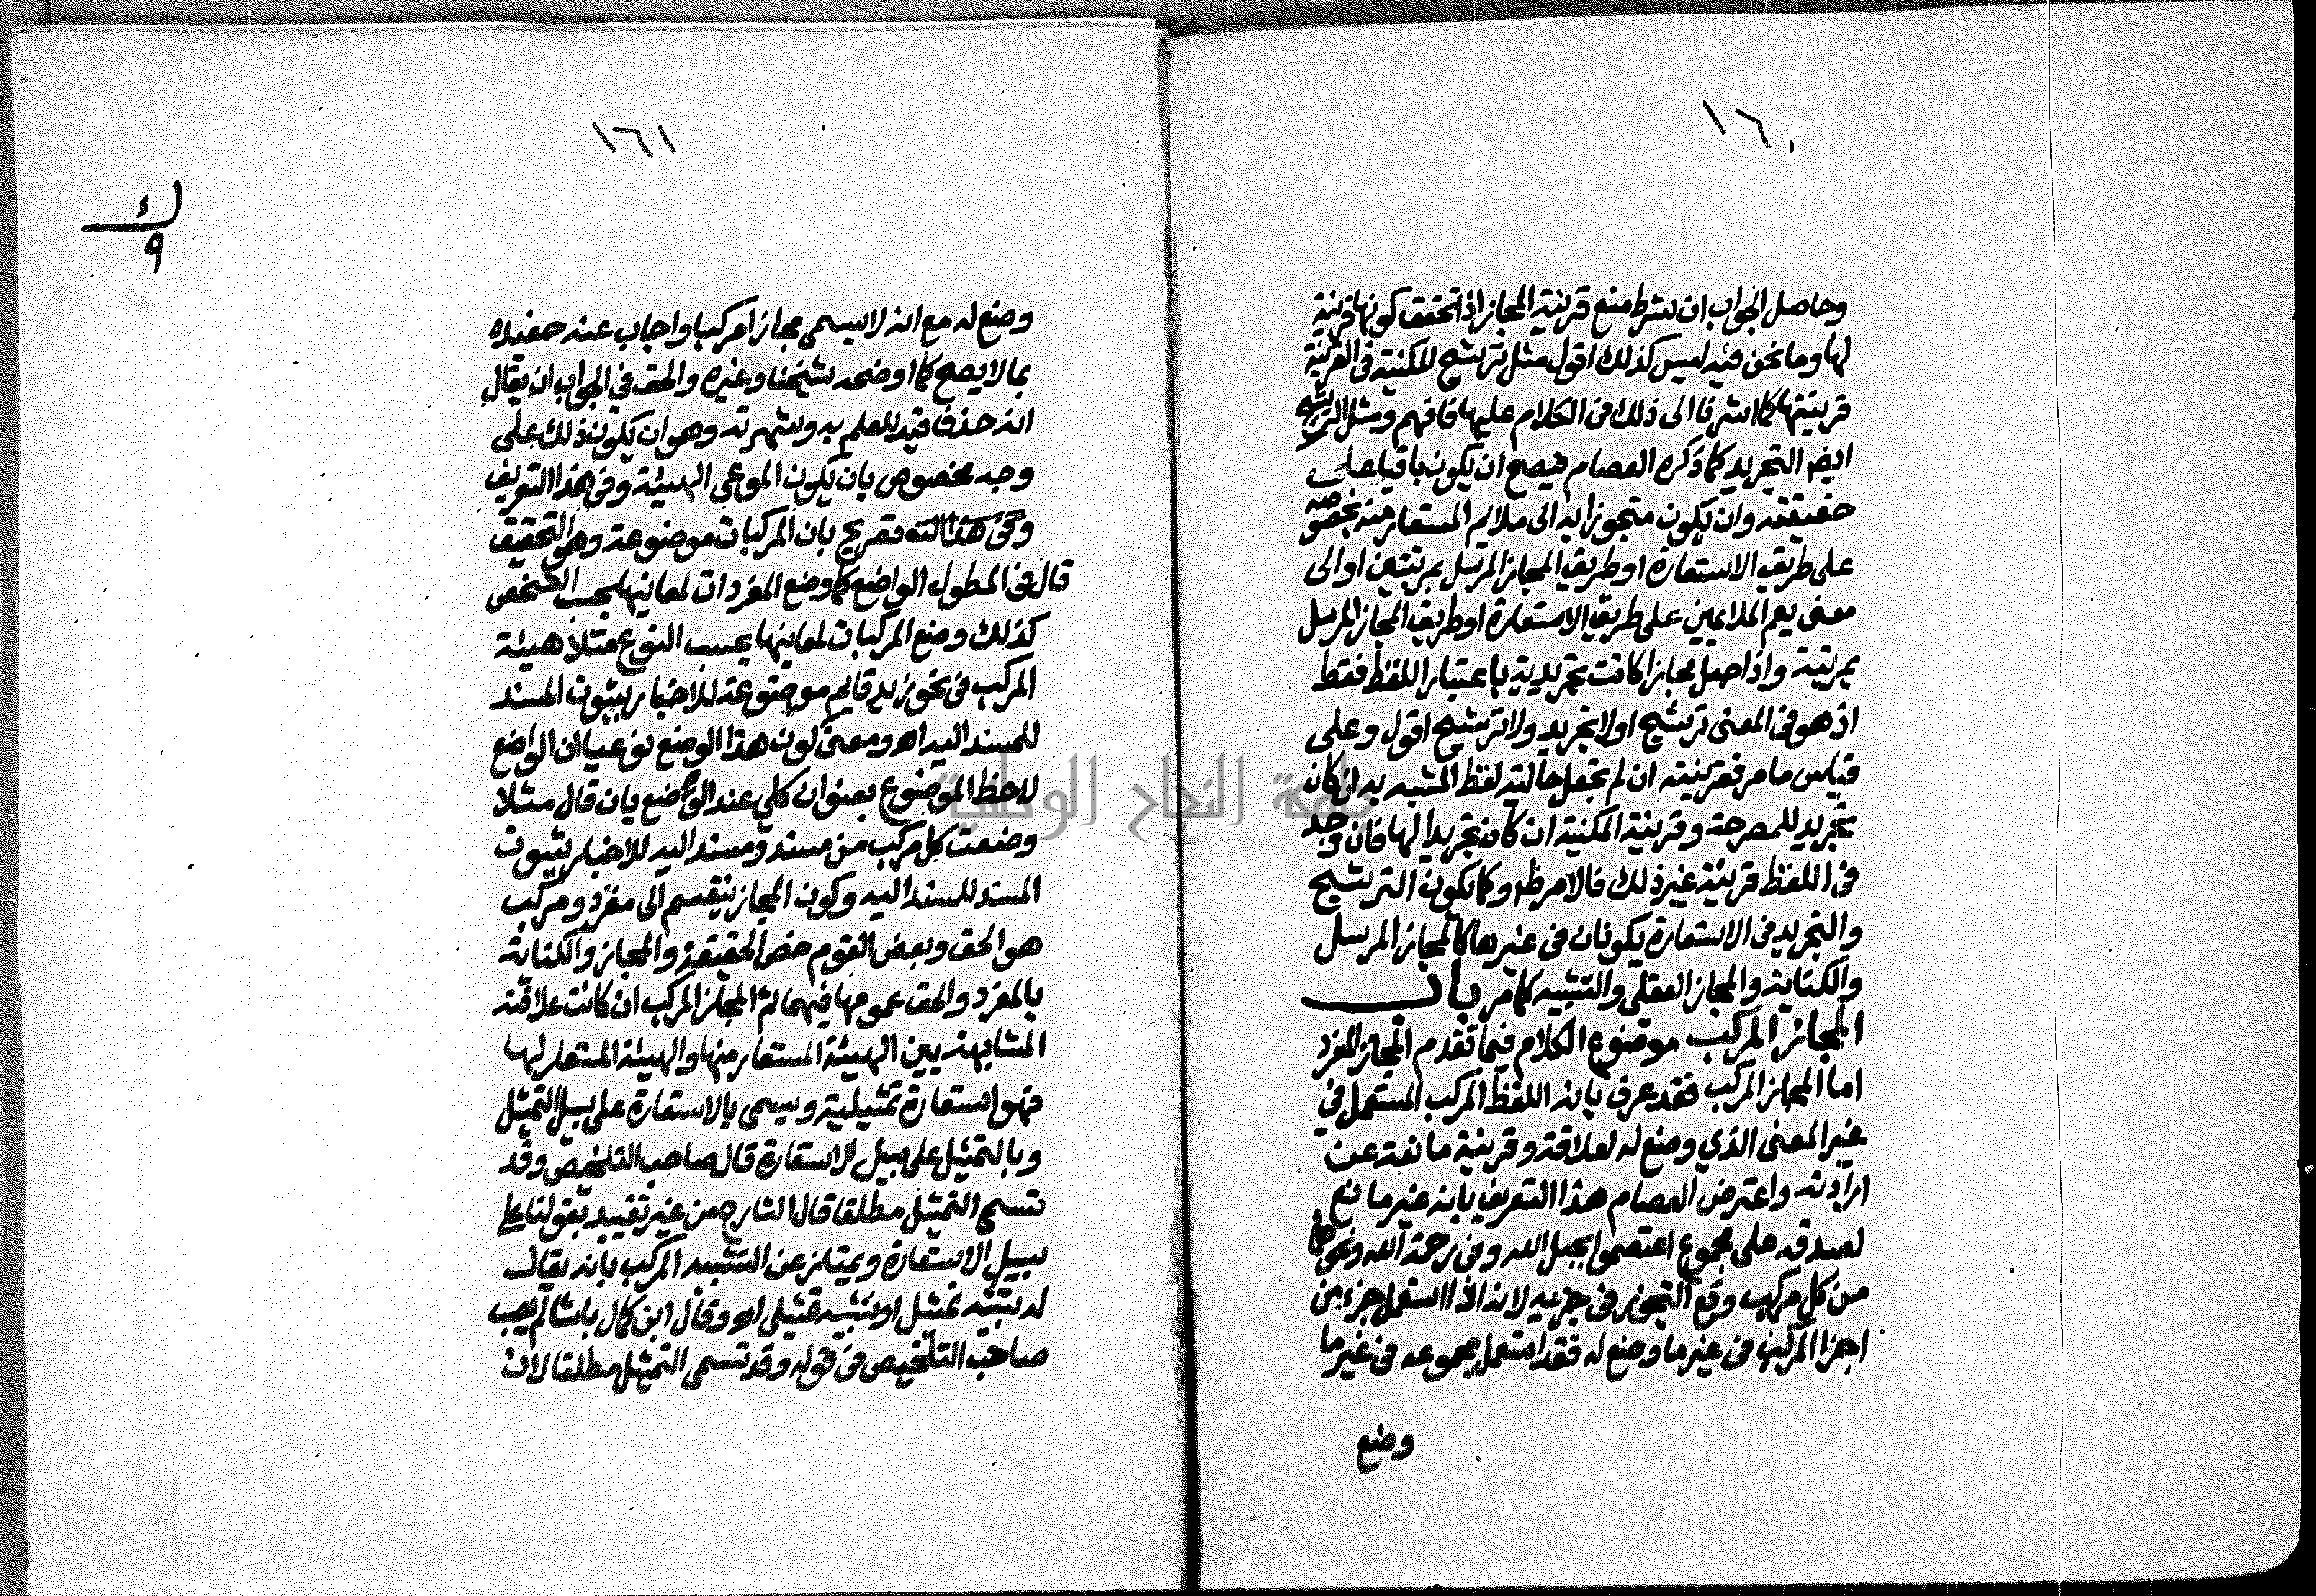 ١٦٠
وحاصل الجواب ان شرط منع قرينة المجاز اذا تحقق كونها قرينة
لها وما نحن فيه ليس كذلك اقول مثل ترشيح المكنية في القرينة
قرينتها كما اشرنا الى ذلك في الكلام عليها فافهم ومثل الترشيح
ايضا التجريد كما ذكره العصام فيصح ان يكون باقيا على
حقيقته وان يكون متجوزا به الى ملايم المستعار منه بخصوصه
على طريق الاستعارة او طريق المجاز المرسل بمرتبتين او الى
معنى يعم الملايمين على طريق الاستعارة او طريق المجاز المرسل
بمرتبة واذا جعل مجازا كانت تجريدية باعتبار اللفظ فقط
اذ هو في المعنى ترشيح او لا تجريد ولا ترشيح اقول وعلى
قياس ما مر فقرينته ان لم تجعل حالته لفظ المشبه به ان كان
تجريد للمصرحة وقرينة المكنية ان كان تجريدا لها فان وجد
في اللفظ قرينة غير ذلك فالامر ظ وكما يكون الترشيح
والتجريد في الاستعارة يكونان في غيرها كالمجاز المرسل
والكناية والمجاز العقلي والتشبيه كما مر باب
المجاز المركب موضوع الكلام فيما تقدم المجاز المفرد
اما المجاز المركب فقد عرف بانه اللفظ المركب المستعمل في
غير المعنى الذي وضع له لعلاقة وقرينة مانعة عن
ارادته واعترض العصام هذا التعريف بانه غير مانع
لصدقه على مجموع اعتصموا بحبل الله وفي رحمة الله ونحوها
من كل مركب وقع التجوز في جزءيه لانه اذا استعمل جزء من
اجزا المركب في غير ما وضع له فقد استعمل مجموعه في غير ما
وضع
١٦١
ك
٩
وضع له مع انه لا يسمى مجازا مركبا واجاب عنه حفيده
بما لا يصح كما اوضحه شيخنا وغيره والحق في الجواب ان يقال
انه حذف قيد للعلم به وشهرته وهو ان يكون ذلك على
وجه مخصوص بان يكون الموعى الهيئة وفي هذا التعريف
تصريح بان المركبات موضوعة وهو التحقيق
قال في المطول الواضع كما وضع المفردات لمعانيها بحسب الشخص
كذلك وضع المركبات لمعانيها بحسب النوع مثلا هيئة
المركب في نحو زيد قايم موضوعة للاخبار بثبوت المسند
للمسند اليه اه ومعنى كون هذا الوضع نوعيا ان الواضع
لاحظ الموضوع بعنوان كلي عند الوضع بان قال مثلا
وضعت كل مركب من مسند ومسند اليه للاخبار بثبوت
المسند للمسند اليه وكون المجاز ينقسم الى مفرد ومركب
هو الحق وبعض القوم خص الحقيقة والمجاز والكناية
بالمفرد والحق عمومها فيهما ثم المجاز المركب ان كانت علاقته
المشابهة بين الهيئة المستعار منها والهيئة المستعار لها
فهو استعارة تمثيلية ويسمى بالاستعارة على سبيل التمثيل
وبالتمثيل على سبيل الاستعارة قال صاحب التلخيص وقد
تسمى التمثيل مطلقا قال الشارح من غير تقييد بقولنا على
سبيل الاستعارة ويمتاز عن التشبيه المركب بانه يقال
له تشبيه تمثيل او تشبيه تمثيلي اه وقال ابن كمال باشا لم يصب
صاحب التلخيص في قوله وقد تسمى التمثيل مطلقا لان
جامعة النجاح الوطنية